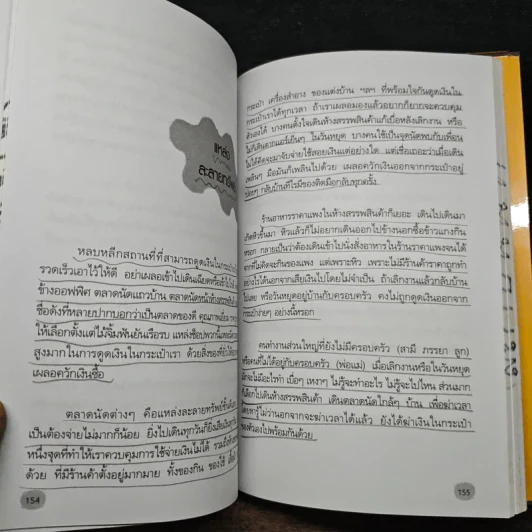 แหล่ง
ละลายทรัพ
หลบหลีกสถานที่ที่สามารถดูดเงินในกระเป๋า
รวดเร็วเอาไว้ให้ดี อย่าเผลอเข้าไปเดินเฉียด
ข้างออฟฟิศ ตลาดนัดแถวบ้าน ตลาดนัดหน้าห้างสรรพสินค้า
ชื่อดังที่หลายปากบอกว่าเป็นตลาดของดี คุณภาพเยี่ยม
ให้เลือกตั้งแต่ไม้จิ้มฟันยันเรือรบ แหล่งช็อปพวกนี้
สูงมากในการดูดเงินในกระเป๋าเรา ด้วยสิ่งของที่
เผลอควักเงินซื้อ
ตลาดนัดต่างๆ คือแหล่งละลายทรัพย์ชั้น
เป็นต้องจ่ายไม่มากก็น้อย ยิ่งไปเดินทุกวันก็ยิ่งเสียเงิน
หนึ่งจุดที่ทำให้เราควบคุมการใช้จ่ายเงินไม่ได้ รวมถึง
ด้วย ที่มีร้านค้าตั้งอยู่มากมาย ทั้งของกิน ของใช้
154
กระเป๋า เครื่องสำอาง ของแต่งบ้าน ฯลฯ ที่พร้อมใจกันดูดเงินใน
กระเป๋าเราได้ทุกเวลา ถ้าเราเผลอมองแล้วอยากก็ยากจะควบคุม
ตัวเองได้ บางคนตั้งใจเดินห้างสรรพสินค้าแก้เบื่อหลังเลิกงาน หรือ
ไปเดินตากแอร์เย็นๆ ในวันหยุด บางคนใช้เป็นจุดนัดพบกับเพื่อน
ไม่ได้คิดจะมาจับจ่ายใช้สอยเงินแต่อย่างใด แต่เชื่อเถอะว่าเมื่อเดิน
เพลินๆ มือมันก็เพลินไปด้วย เผลอควักเงินออกจากกระเป๋าอยู่
บ่อยๆ กลับบ้านทีไรมีของติดมือกลับทุกครั้ง
ร้านอาหารราคาแพงในห้างสรรพสินค้าก็เยอะ เดินไปเดินมา
เกิดหิวขึ้นมา หิวแล้วก็ไม่อยากเดินออกไปข้างนอกซื้อข้าวแกงกิน
หรอก กลายเป็นว่าต้องเดินเข้าไปนั่งสั่งอาหารในร้านราคาแพงจนได้
จากที่ไม่คิดจะกินของแพง แต่เพราะหิว เพราะไม่มีร้านค้าราคาถูก
อย่างไรได้นอกจากเสียเงินไปโดยไม่จำเป็น ถ้าเลิกงานแล้วกลับบ้าน
ไปเลย หรือวันหยุดอยู่บ้านกับครอบครัว คงไม่ถูกดูดเงินออกจาก
กระเป๋าง่ายๆ อย่างนี้หรอก
คนทำงานส่วนใหญ่ที่ยังไม่มีครอบครัว (สามี ภรรยา ลูก)
หรือคนที่ไม่ได้อยู่กับครอบครัว (พ่อแม่) เมื่อเลิกงานหรือในวันหยุด
มักจะไม่มีอะไรทำ เบื่อๆ เหงาๆ ไม่รู้จะทำอะไร ไม่รู้จะไปไหน ส่วนมาก
ก็เลือกไปเดินห้างสรรพสินค้า เดินตลาดนัดใกล้ๆ บ้าน เพื่อฆ่าเวลา
โดยหารู้ไม่ว่านอกจากจะฆ่าเวลาได้แล้ว ยังได้ฆ่าเงินในกระเป๋า
ของตัวเองไปพร้อมกันด้วย
155